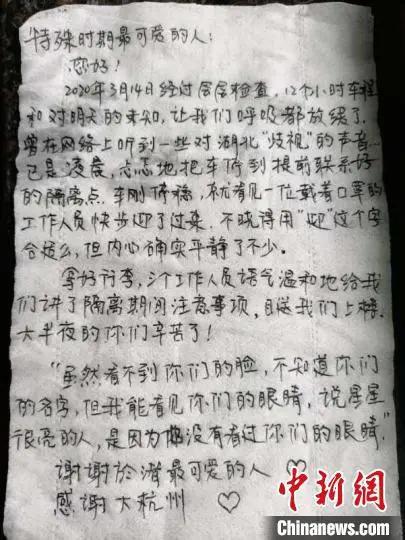 特殊时期最可爱的人：
您好！
2020年3月14日经过层层检查，12个小时车程
和对明天的未知，让我们呼吸都放缓了。
曾在网络上听到一些对湖北“歧视”的声音…
已是凌晨，忐忑地把车停到提前联系好
的隔离点，车刚停稳，就看见一位戴着口罩的
工作人员快步迎了过来，不晓得用“迎”这个字
合拔么，但内心确实平静了不少。
拿好行李，3个工作人员语气温和地给我
们讲了隔离期间注意事项，目送我们上楼。
大半夜的你们辛苦了！
“虽然看不到你们的脸，不知道你们
的名字，但我能看见你们的眼睛，说星星
很亮的人，是因为他没有看过你们的眼睛。”
谢谢於潜最可爱的人 ♡
感谢大杭州 ♡
中新网
Chinanews.com